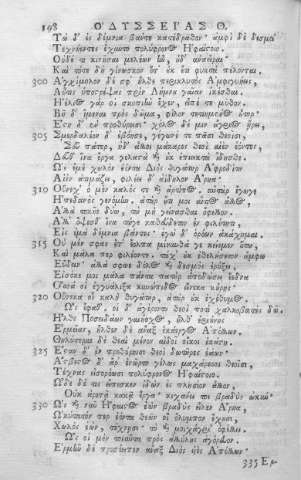 198 ΟΔΥΣΣΕΙΑΣ Θ.
Τὼ δ' ἐς δέμνια βάντε κατέδραθον· ἀμφὶ δὲ δεσμοὶ
Τεχνήεντες ἔχυντο πολύφρονος Ἡφαίστοιο,
Οὐδέ τι κινῆσαι μελέων ἦν, οὐδ' ἀναεῖραι·
Καὶ τότε δὴ γίνωσκον ὅτ' οὐκέτι φυκτὰ πέλονται.
300 Ἀγχίμολον δέ σφ' ἦλθε περικλυτὸς Ἀμφιγυήεις,
Αὖτις ὑποστρέψας πρὶν Λήμνου γαῖαν ἱκέσθαι.
Ἠέλιος γάρ οἱ σκοπιὴν ἔχεν, εἶπέ τε μῦθον.
Βῆ δ' ἴμεναι πρὸς δῶμα, φίλον τετιημένος ἦτορ·
Ἔστη δ' ἐν προθύροισι· χόλος δέ μιν ἄγριος ᾕρει,
305 Σμερδαλέον δ' ἐβόησε, γέγωνέ τε πᾶσι θεοῖσι·
Ζεῦ πάτερ, ἠδ' ἄλλοι μάκαρες θεοὶ αἰὲν ἐόντες,
Δεῦθ' ἵνα ἔργα γελαστὰ καὶ οὐκ ἐπιεικτὰ ἴδησθε.
Ὡς ἐμὲ χωλὸν ἐόντα Διὸς θυγάτηρ Ἀφροδίτη
Αἰὲν ἀτιμάζει, φιλέει δ' ἀΐδηλον Ἄρηα·
310 Οὕνεχ' ὁ μὲν καλός τε καὶ ἀρτίπος, αὐτὰρ ἔγωγε
Ἠπεδανὸς γενόμην, ἀτὰρ οὔ τί μοι αἴτιος ἄλλος,
Ἀλλὰ τοκῆε δύω, τὼ μὴ γείνασθαι ὄφελλον.
Ἀλλ' ὄψεσθ' ἵνα τώγε καθεύδετον ἐν φιλότητι
Εἰς ἐμὰ δέμνια βάντες· ἐγὼ δ' ὁρόων ἀκάχημαι.
315 Οὐ μέν σφεας ἔτ' ἔολπα μίνυνθά γε κειέμεν οὕτω,
Καὶ μάλα περ φιλέοντε· τάχ' οὐκ ἐθελήσετον ἄμφω
Εὕδειν· ἀλλά σφωε δόλος καὶ δεσμὸς ἐρύξει,
Εἰσόκε μοι μάλα πάντα πατὴρ ἀποδώσει ἔεδνα
Ὅσσα οἱ ἐγγυάλιξα κυνώπιδος εἵνεκα κούρης·
320 Οὕνεκά οἱ καλὴ θυγάτηρ, ἀτὰρ οὐκ ἐχέθυμος.
Ὣς ἔφαθ', οἱ δ' ἀγέροντο θεοὶ ποτὶ χαλκοβατὲς δῶ.
Ἦλθε Ποσειδάων γαιήοχος, ἦλθ' ἐριούνης
Ἑρμείας, ἦλθεν δὲ ἄναξ ἑκάεργος Ἀπόλλων·
Θηλύτεραι δὲ θεαὶ μένον αἰδοῖ οἴκοι ἑκάστη.
325 Ἔσταν δ' ἐν προθύροισι θεοὶ δωτῆρες ἐάων·
Ἄσβεστος δ' ἄρ' ἐνῶρτο γέλως μακάρεσσι θεοῖσι,
Τέχνας εἰσορόωσι πολύφρονος Ἡφαίστοιο.
Ὧδε δέ τις εἴπεσκεν ἰδὼν ἐς πλησίον ἄλλον,
Οὐκ ἀρετᾷ κακὰ ἔργα· κιχάνει τοι βραδὺς ὠκύν·
330 Ὡς καὶ νῦν Ἥφαιστος ἐὼν βραδὺς εἷλεν Ἄρηα,
Ὠκύτατόν περ ἐόντα θεῶν οἳ Ὄλυμπον ἔχουσι,
Χωλὸς ἐὼν, τέχνῃσι· τὸ καὶ μοιχάγρι' ὀφέλλει.
Ὣς οἱ μὲν τοιαῦτα πρὸς ἀλλήλους ἀγόρευον.
Ἑρμῆν δὲ προσέειπεν ἄναξ Διὸς υἱὸς Ἀπόλλων·
335 Ἑρ-